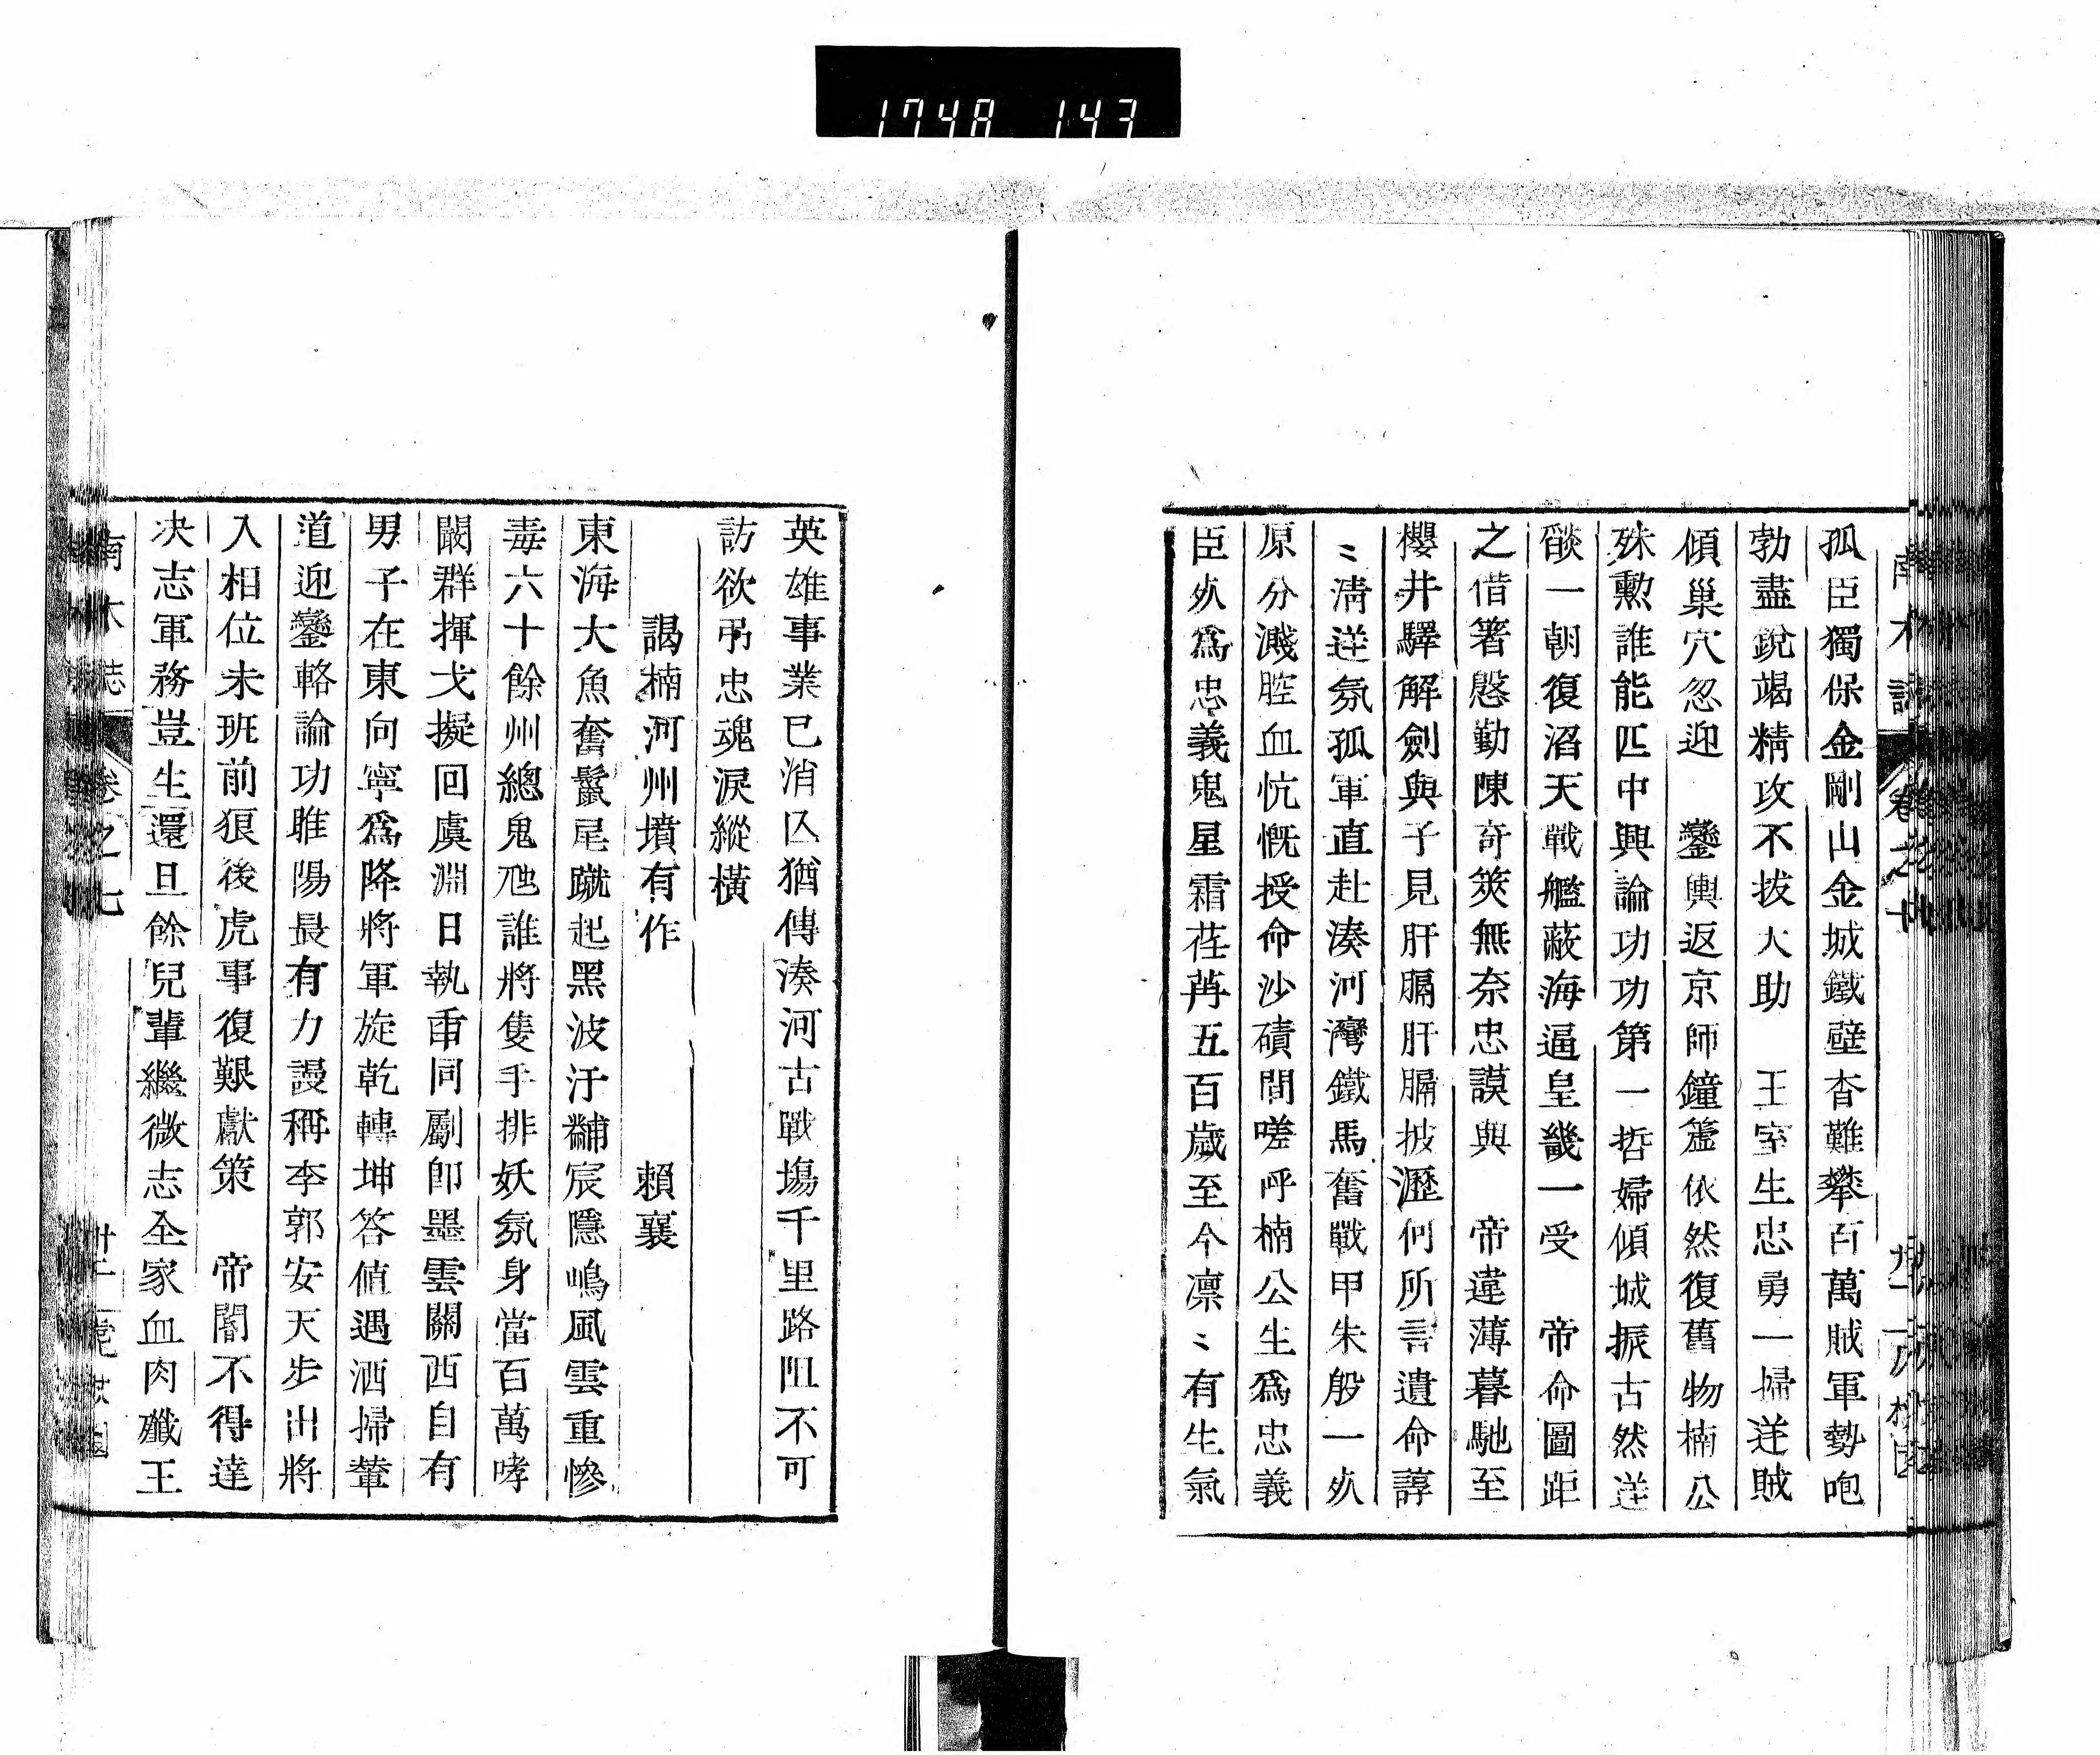 1748 143
孤臣獨保金剛山金城鐵壁杳難攀百萬賊軍勢咆
勃盡銳竭精攻不拔大助　王室生忠勇一掃逆賊
傾巢穴忽迎　鑾輿返京師鐘簴依然復舊物楠公
殊勲誰能匹中興論功功第一哲婦傾城振古然逆
燄一朝復滔天戰艦蔽海逼皇畿一受　帝命圖距
之借箸慇勤陳奇筴無奈忠謨與　帝違薄暮馳至
櫻井驛解劍與子見肝膈肝膈披瀝何所言遺命諄
〻淸逆氛孤軍直赴湊河灣鐵馬奮戰甲朱殷一㱙
原分濺腔血忼慨授命沙磧間嗟呼楠公生爲忠義
臣㱙爲忠義鬼星霜荏苒五百歲至今凛〻有生氣
英雄事業已消亾猶傳湊河古戰塲千里路阻不可
訪欲弔忠魂淚縱橫
謁楠河州墳有作　賴襄
東海大魚奮鬣尾蹴起黑波汙黼宸隱嶋風雲重慘
毒六十餘州總鬼虺誰將隻手排妖氛身當百萬哮
闞群揮戈擬回虞淵日執臿同劚卽墨雲關西自有
男子在東向寧爲降將軍旋乾轉坤答値遇洒掃輦
道迎鑾輅論功睢陽最有力謾稱李郭安天步出將
入相位未班前狼後虎事復艱獻策　帝閽不得達
决志軍務豈生還且餘兒輩繼微志全家血肉殲王
南木誌　卷之七